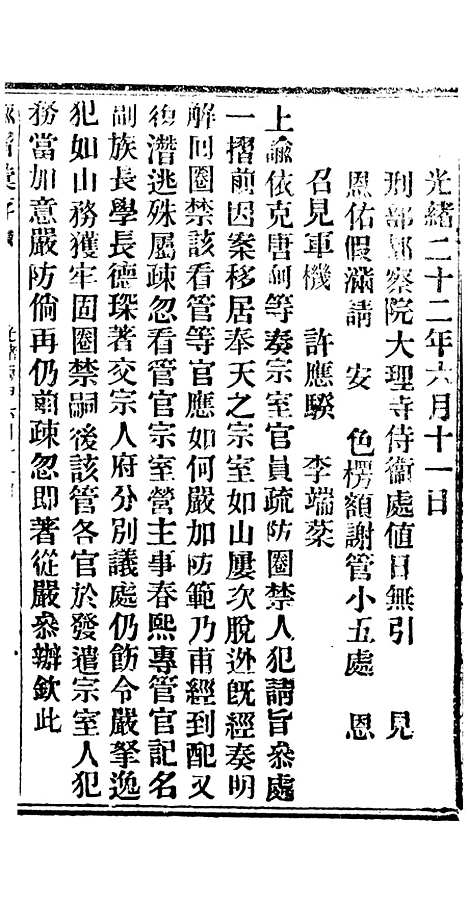 光緒二十二年六月十一日
刑部都察院大理寺侍衞處值日無引 見
恩佑假滿請 安 色楞額謝管小五處 恩
召見軍機 許應騤 李端棻
上諭依克唐阿等奏宗室官員疏防圈禁人犯請旨叅處
一摺前因案移居奉天之宗室如山屢次脫逃旣經奏明
解回圈禁該看管等官應如何嚴加防範乃甫經到配又
復潛逃殊屬疎忽看管官宗室營主事春熙專管官記名
副族長學長德琛著交宗人府分別議處仍飭令嚴拏逸
犯如山務獲牢固圈禁嗣後該管各官於發遣宗室人犯
務當加意嚴防倘再仍前疎忽卽著從嚴叅辦欽此